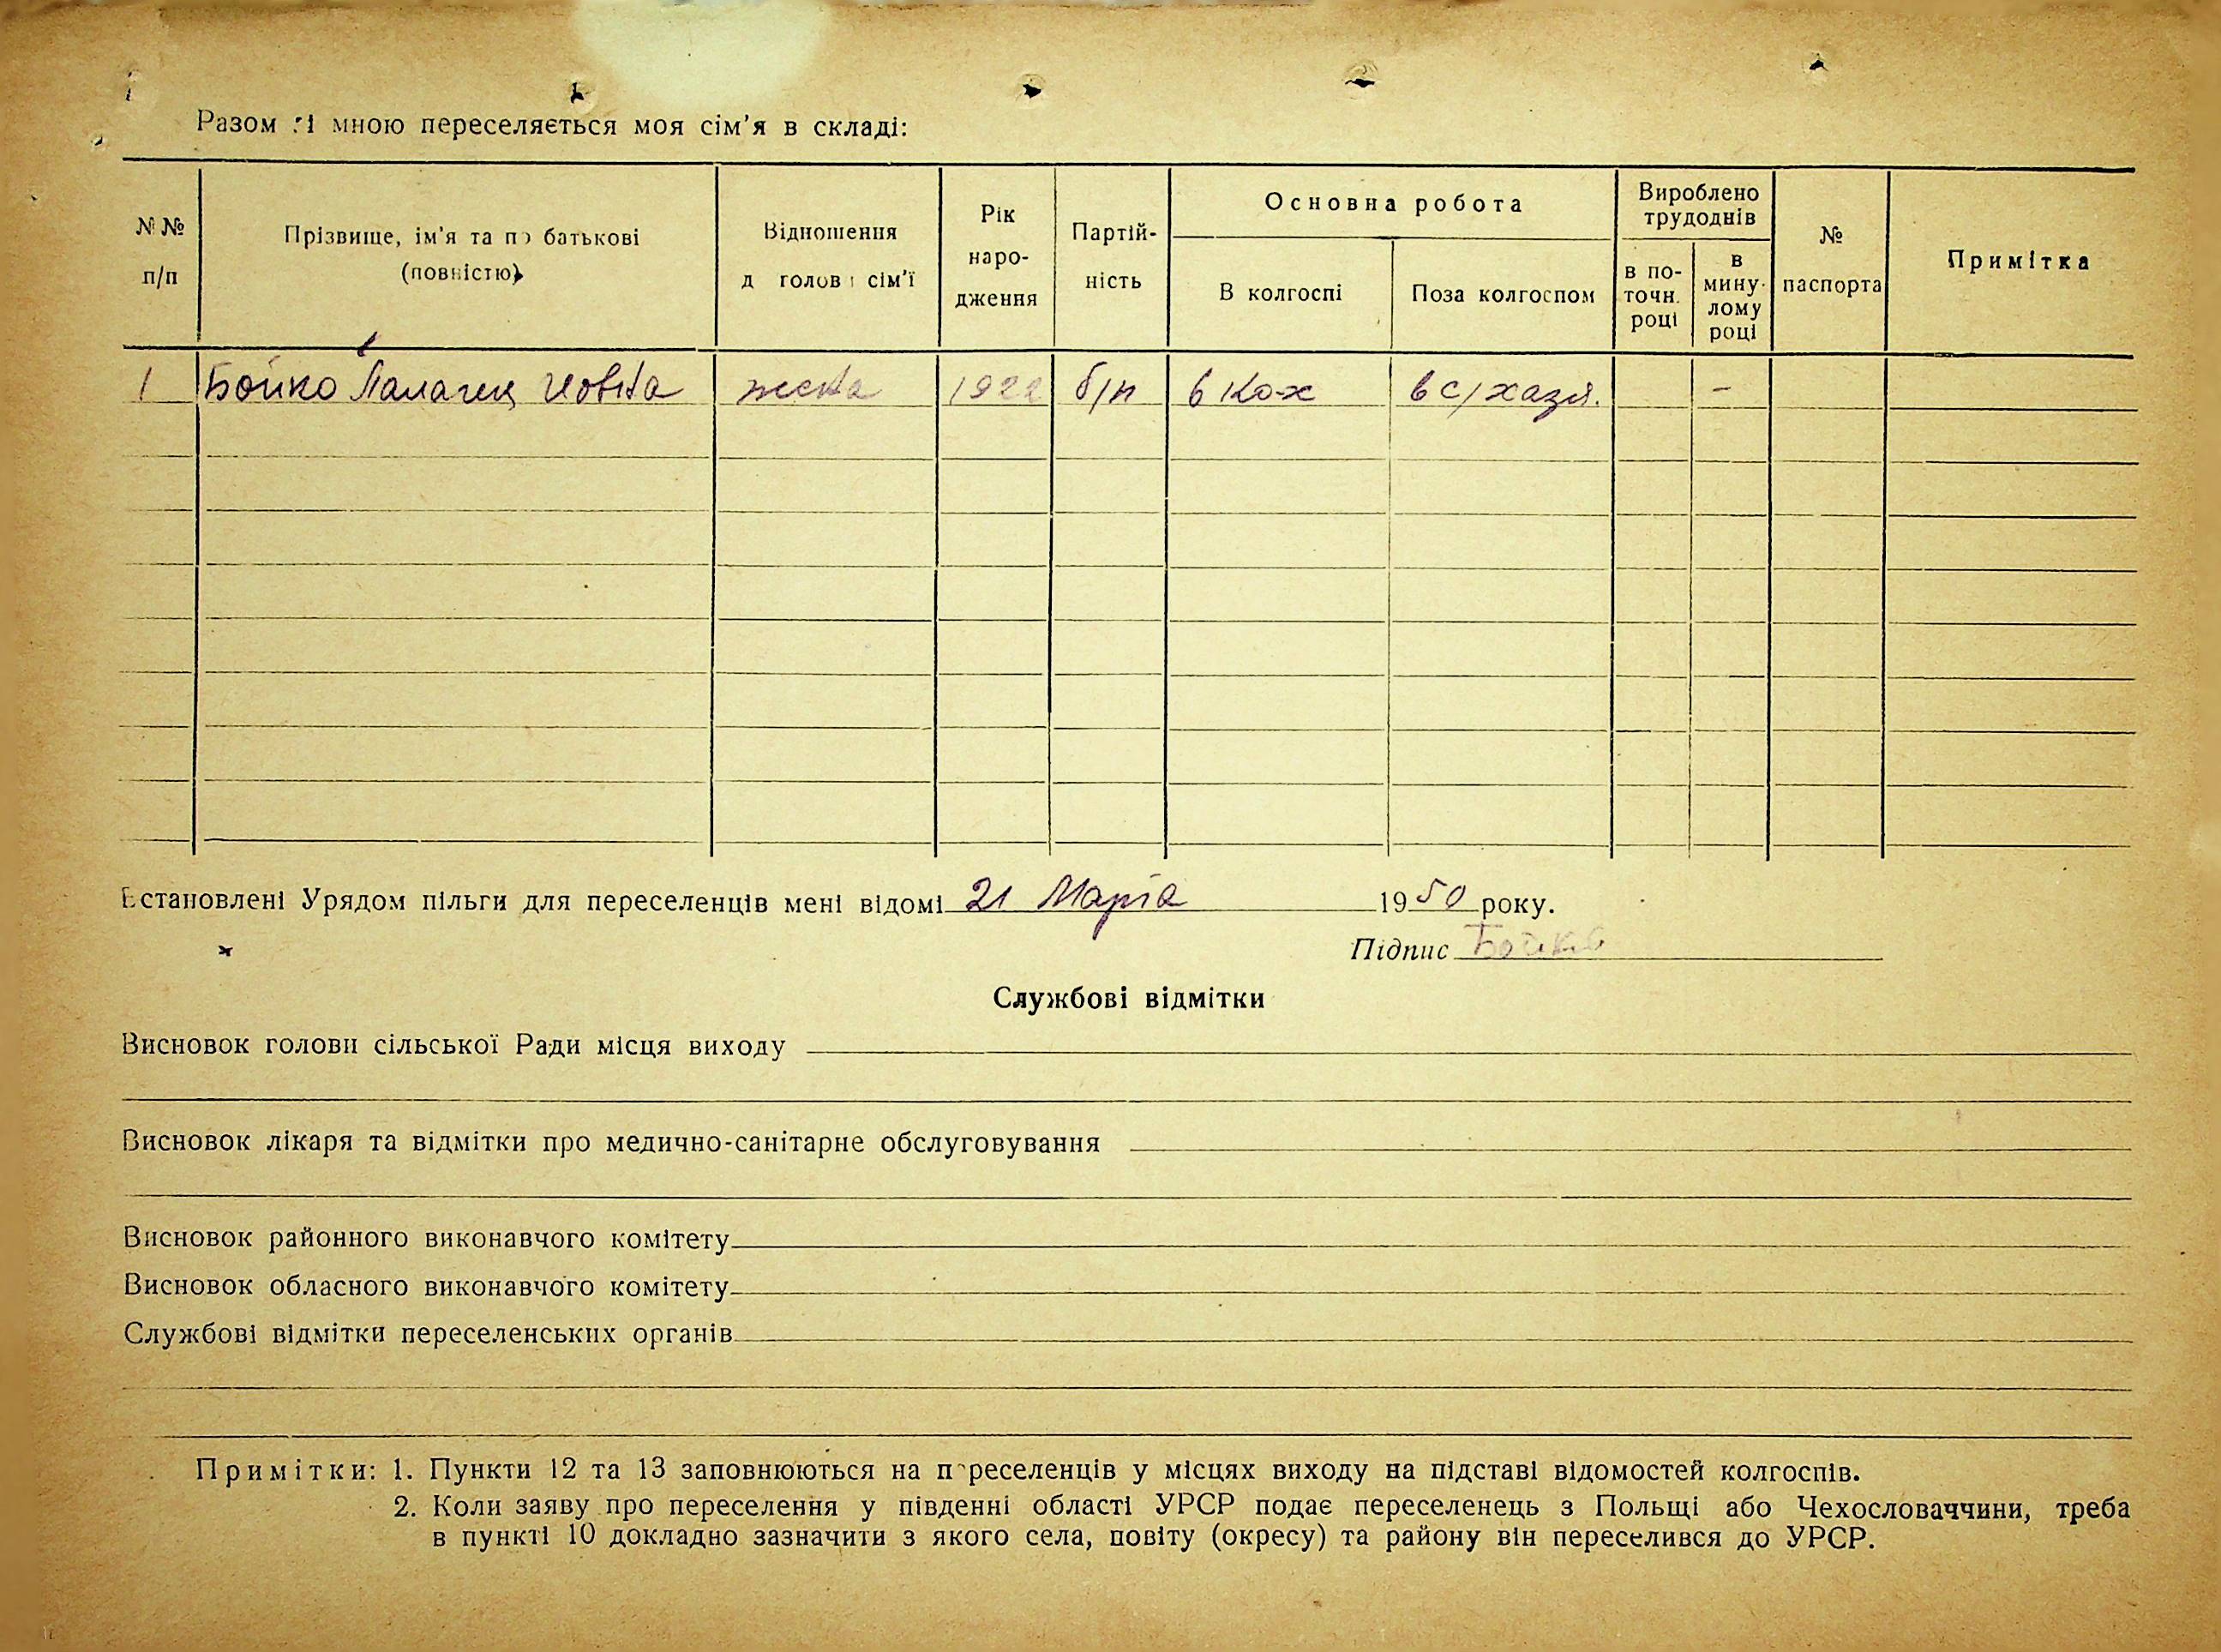 Разом зі мною переселяється моя сім'я в складі:
№№ п/п
Прізвище, ім'я та по батькові (повністю)
Відношення до голови сім'ї
Рік народження
Партійність
Основна робота
В колгоспі
Поза колгоспом
Вироблено трудоднів
в поточн. році
в минулому році
№ паспорта
Примітка
1 Бойко жена 1922 б/п в с/хазя. -
Встановлені Урядом пільги для переселенців мені відомі 21 Марта 1950 року.
Підпис Бойко
Службові відмітки
Висновок голови сільської Ради місця виходу
Висновок лікаря та відмітки про медично-санітарне обслуговування
Висновок районного виконавчого комітету
Висновок обласного виконавчого комітету
Службові відмітки переселенських органів
Примітки: 1. Пункти 12 та 13 заповнюються на переселенців у місцях виходу на підставі відомостей колгоспів.
2. Коли заяву про переселення у південні області УРСР подає переселенець з Польщі або Чехословаччини, треба
в пункті 10 докладно зазначити з якого села, повіту (окресу) та району він переселився до УРСР.